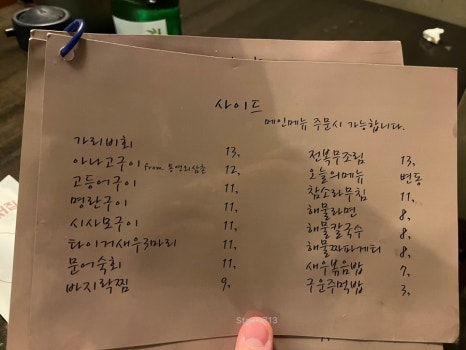 사이드
메인메뉴 주문시 가능합니다.
가리비회 13,
아나고구이 from 통영리삼촌 12,
고등어구이 11,
명란구이 11,
시사모구이 11,
타이거새우3마리 11,
문어숙회 11,
바지락찜 9,
전복무조림 13,
오늘의메뉴 변동
참소라무침 11,
해물라면 8,
해물칼국수 8,
해물짜파게티 8,
새우볶음밥 7,
구운주먹밥 3,